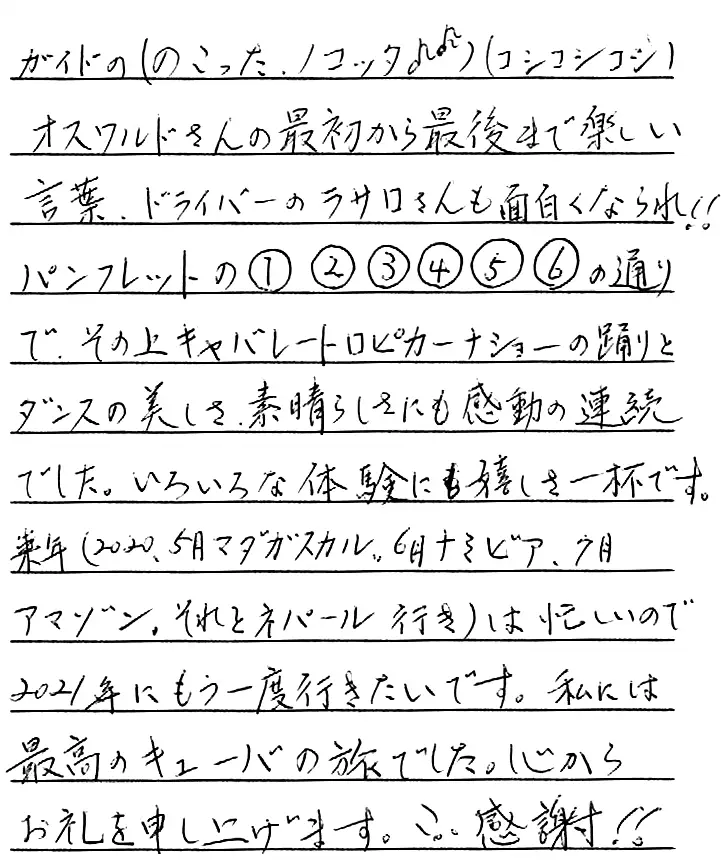 ガイドの(のこった.ノコッタ♪♪)(コシコシコシ)
オスワルドさんの最初から最後まで楽しい
言葉、ドライバーのラサロさんも面白くなられ!!
パンフレットの①②③④⑤⑥の通り
で、その上キャバレートロピカーナショーの踊りと
ダンスの美しさ、素晴らしさにも感動の連続
でした。いろいろな体験にも嬉しさ一杯です。
来年(2020、5月マダガスカル。6月ナミビア、7月
アマゾン。それとネパール行き)は忙しいので
2021年にもう一度行きたいです。私には
最高のキューバの旅でした。心から
お礼を申し上げます。感謝!!